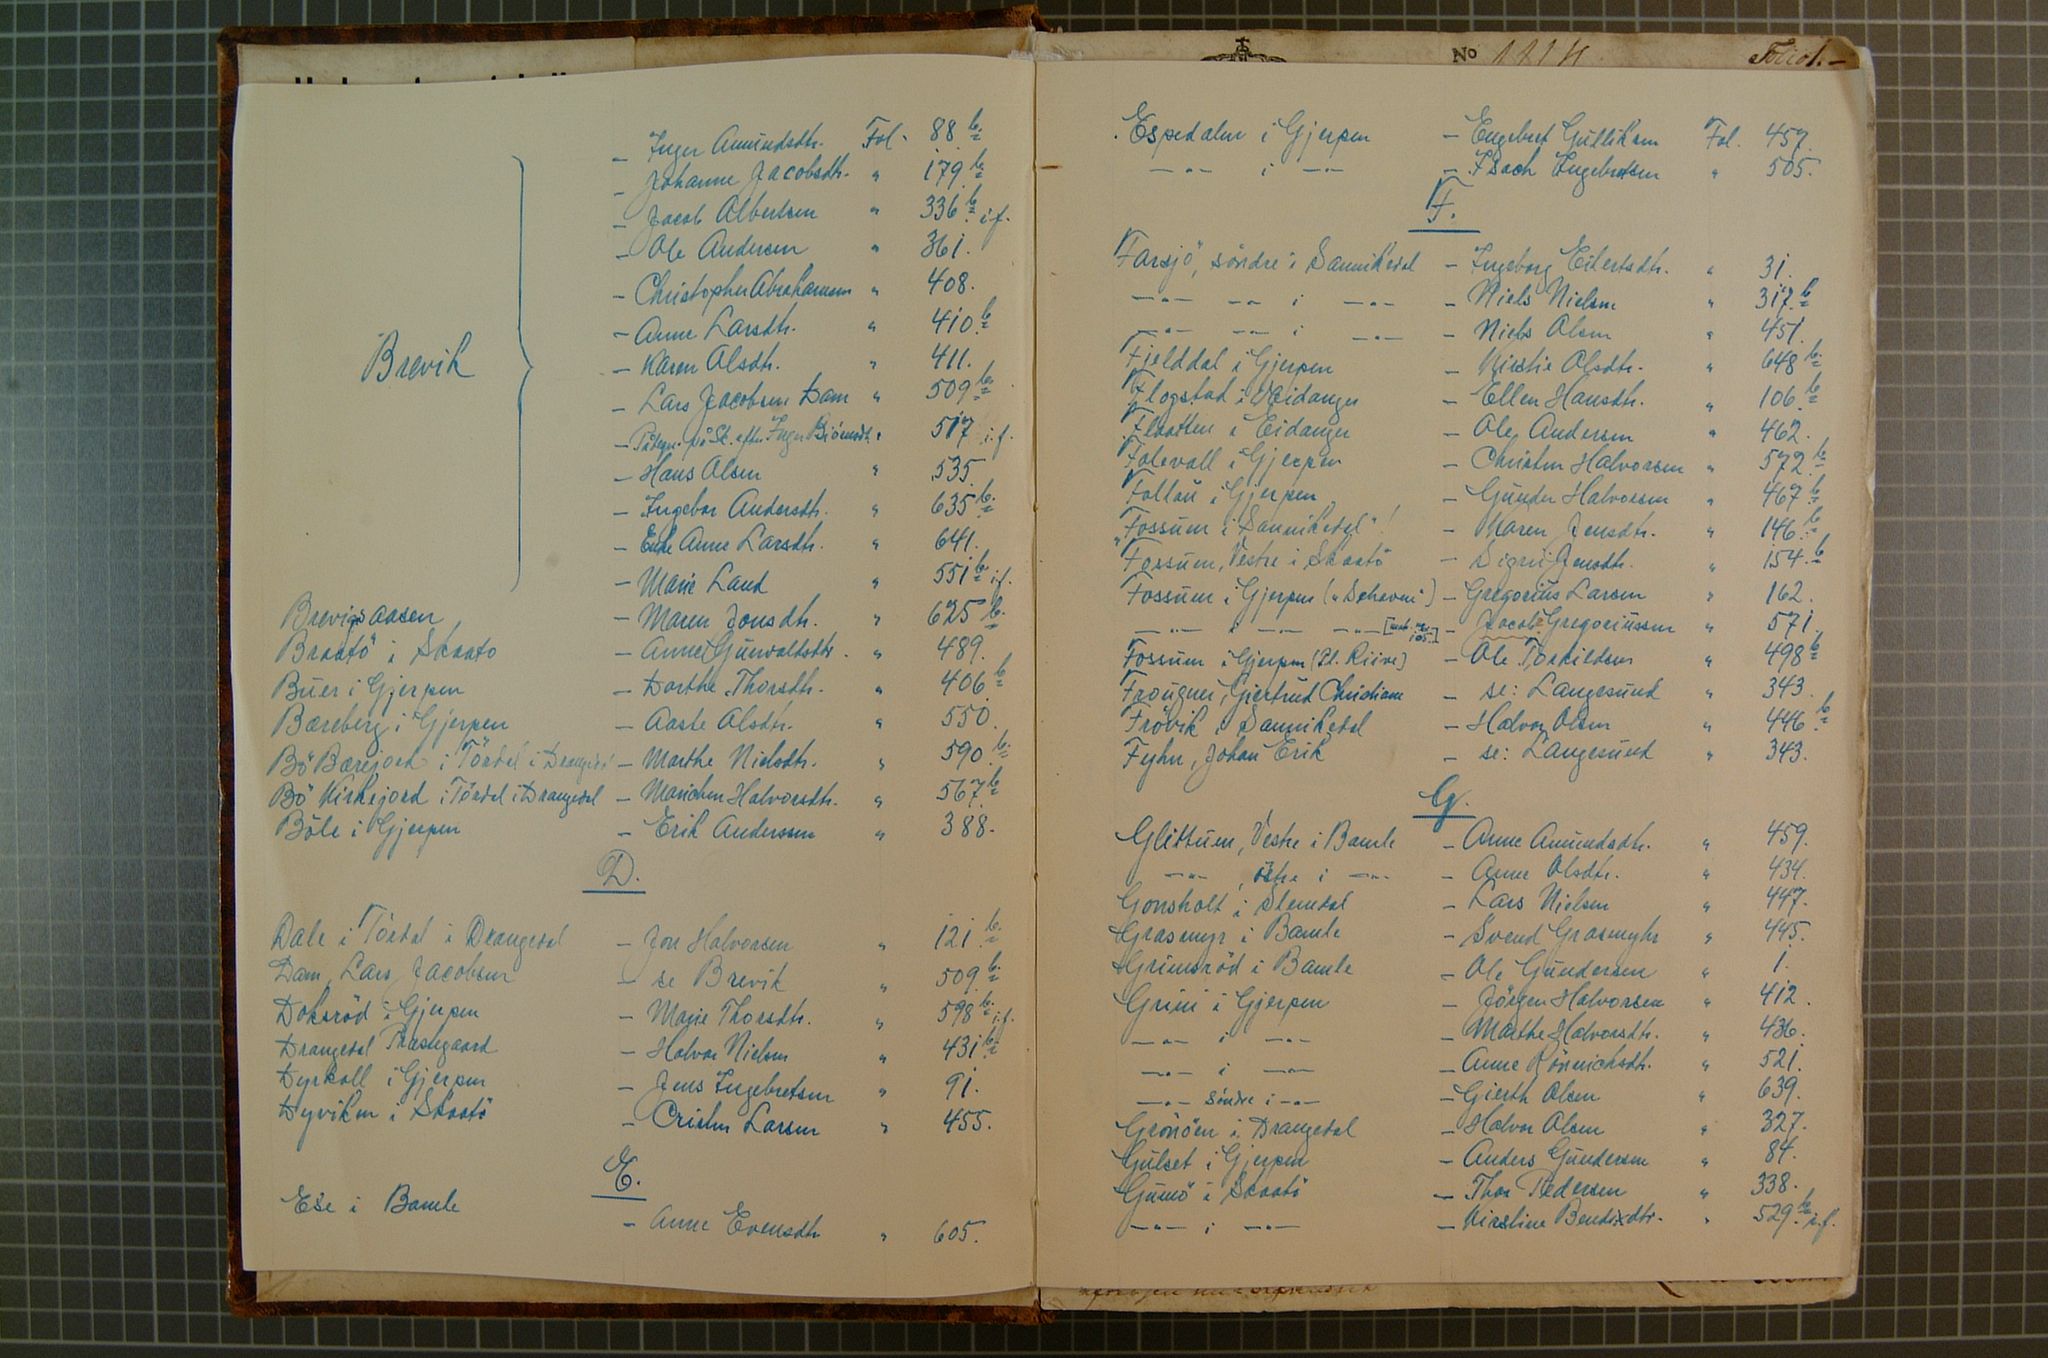 No 1218. Folio 1.-
- Inger Amundsdtr. Fol. 88 b.
- Johanne Jacobsdtr. " 179 b.
- Jacob Albertsen " 336 b. i.f.
- Ole Andersen " 361.
- Christopher Abrahamsen " 408.
- Anne Larsdtr. " 410. b.
Brevik
- Karen Olsdtr. " 411.
- Lars Jacobsen Dam " 509 b.
- Påtegn. på Sk. efter Inger Biörnsdtr. " 517 i.f.
- Hans Olsen " 535.
- Ingebor Andersdtr. " 635 b.
- Enke Anne Larsdtr. " 641.
- Marie Lund " 551 b. i.f.
Brevigsaasen - Maren Jonsdtr. " 625 b.
Braatö i Skaato - Anne Gunvaldsdtr. " 489.
Buer i Gjerpen - Dorthe Thorsdtr. " 406 b.
Bæreberg i Gjerpen - Aaste Olsdtr. " 550.
Bö Bærejord i Tördal i Drangedal - Marthe Nielsdtr. " 590. b.
Bö Kirkejord i Tördal i Drangedal - Marichen Halvorsdtr. " 567. b.
Böle i Gjerpen - Erik Anderssen " 388.
D.
Dale i Tördal i Drangedal - Jon Halvorsen " 121. b.
Dam, Lars Jacobsen - se Brevik " 509. b.
Doksröd i Gjerpen - Marie Thorsdtr. " 598 b. i.f.
Drangedal Præstegaard - Halvor Nielsen " 431 b.
Dyrkoll i Gjerpen - Jens Ingebretsen " 91.
Dyviken i Skaatö - Cristen Larsen " 455.
E.
Ese i Bamle - Anne Evensdtr " 605.
Espedalen i Gjerpen - Engebret Gulliksen Fol. 457.
-"- i -"- - Isach Engebretsen " 505.
F.
Farsjö, söndre i Sannikedal - Ingeborg Eilertsdtr. " 31.
-"- -"- i -"- - Niels Nielsen " 317. b.
-"- -"- i -"- - Niels Olsen " 451.
Fjelddal i Gjerpen - Kirstie Olsdtr. " 648 b.
Flogstad i Eidanger - Ellen Hansdtr. " 106. b.
Flaatten i Eidanger - Ole Andersen " 462.
Folevall i Gjerpen - Christen Halvorsen " 572. b.
Follau i Gjerpen - Gunder Halvorsen " 467. b.
"Fossum i Sannikedal"! - Maren Jensdtr. " 146. b.
Fossum, Vestre i Skaatö - Sigrii Jensdtr. " 154. b.
Fossum i Gjerpen ("Dehovni") - Gregorius Larsen " 162.
-"- i -"- -"- - Jacob Gregoriussen " 571.
Fossum i Gjerpen (Pl. Riive) - Ole Torkildsen " 498 b.
Frougner, Giertrud Christiane - se: Langesund " 343.
Frövik i Sannikedal - Halvor Olsen " 446. b.
Fyhn, Johan Erik - se: Langesund " 343.
G.
Glittum, Vestre i Bamle - Anne Amundsdtr. " 459.
-"-, östre i -"- - Anne Olsdtr. " 434.
Gonsholt i Slemdal - Lars Nielsen " 447.
Grasmyr i Bamle - Svend Grasmyhr " 445.
Grimsröd i Bamle - Ole Gundersen " 1.
Grini i Gjerpen - Jörgen Halvorsen " 412.
-"- i -"- - Marthe Halvorsdtr. " 436.
-"- i -"- - Anne Rönnichsdtr. " 521.
-"- söndre i -"- - Gierth Olsen " 639.
Grönöen i Drangedal - Halvor Olsen " 327.
Gulset i Gjerpen - Anders Gundersen " 84.
Gumö i Skaatö - Thor Pedersen " 338.
-"- i -"- - Kirstine Bendixdtr. " 529. b. i.f.